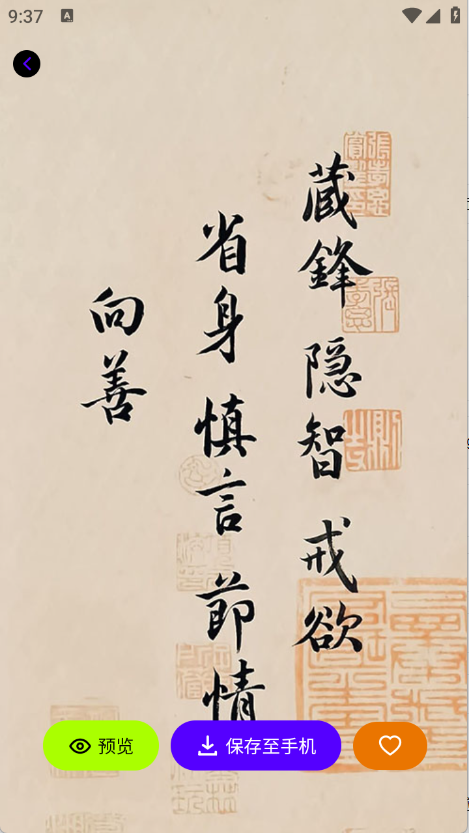 9:37
A
蔵鋒 隠智 戒欲
省身 慎言 節情
向善
预览
保存至手机